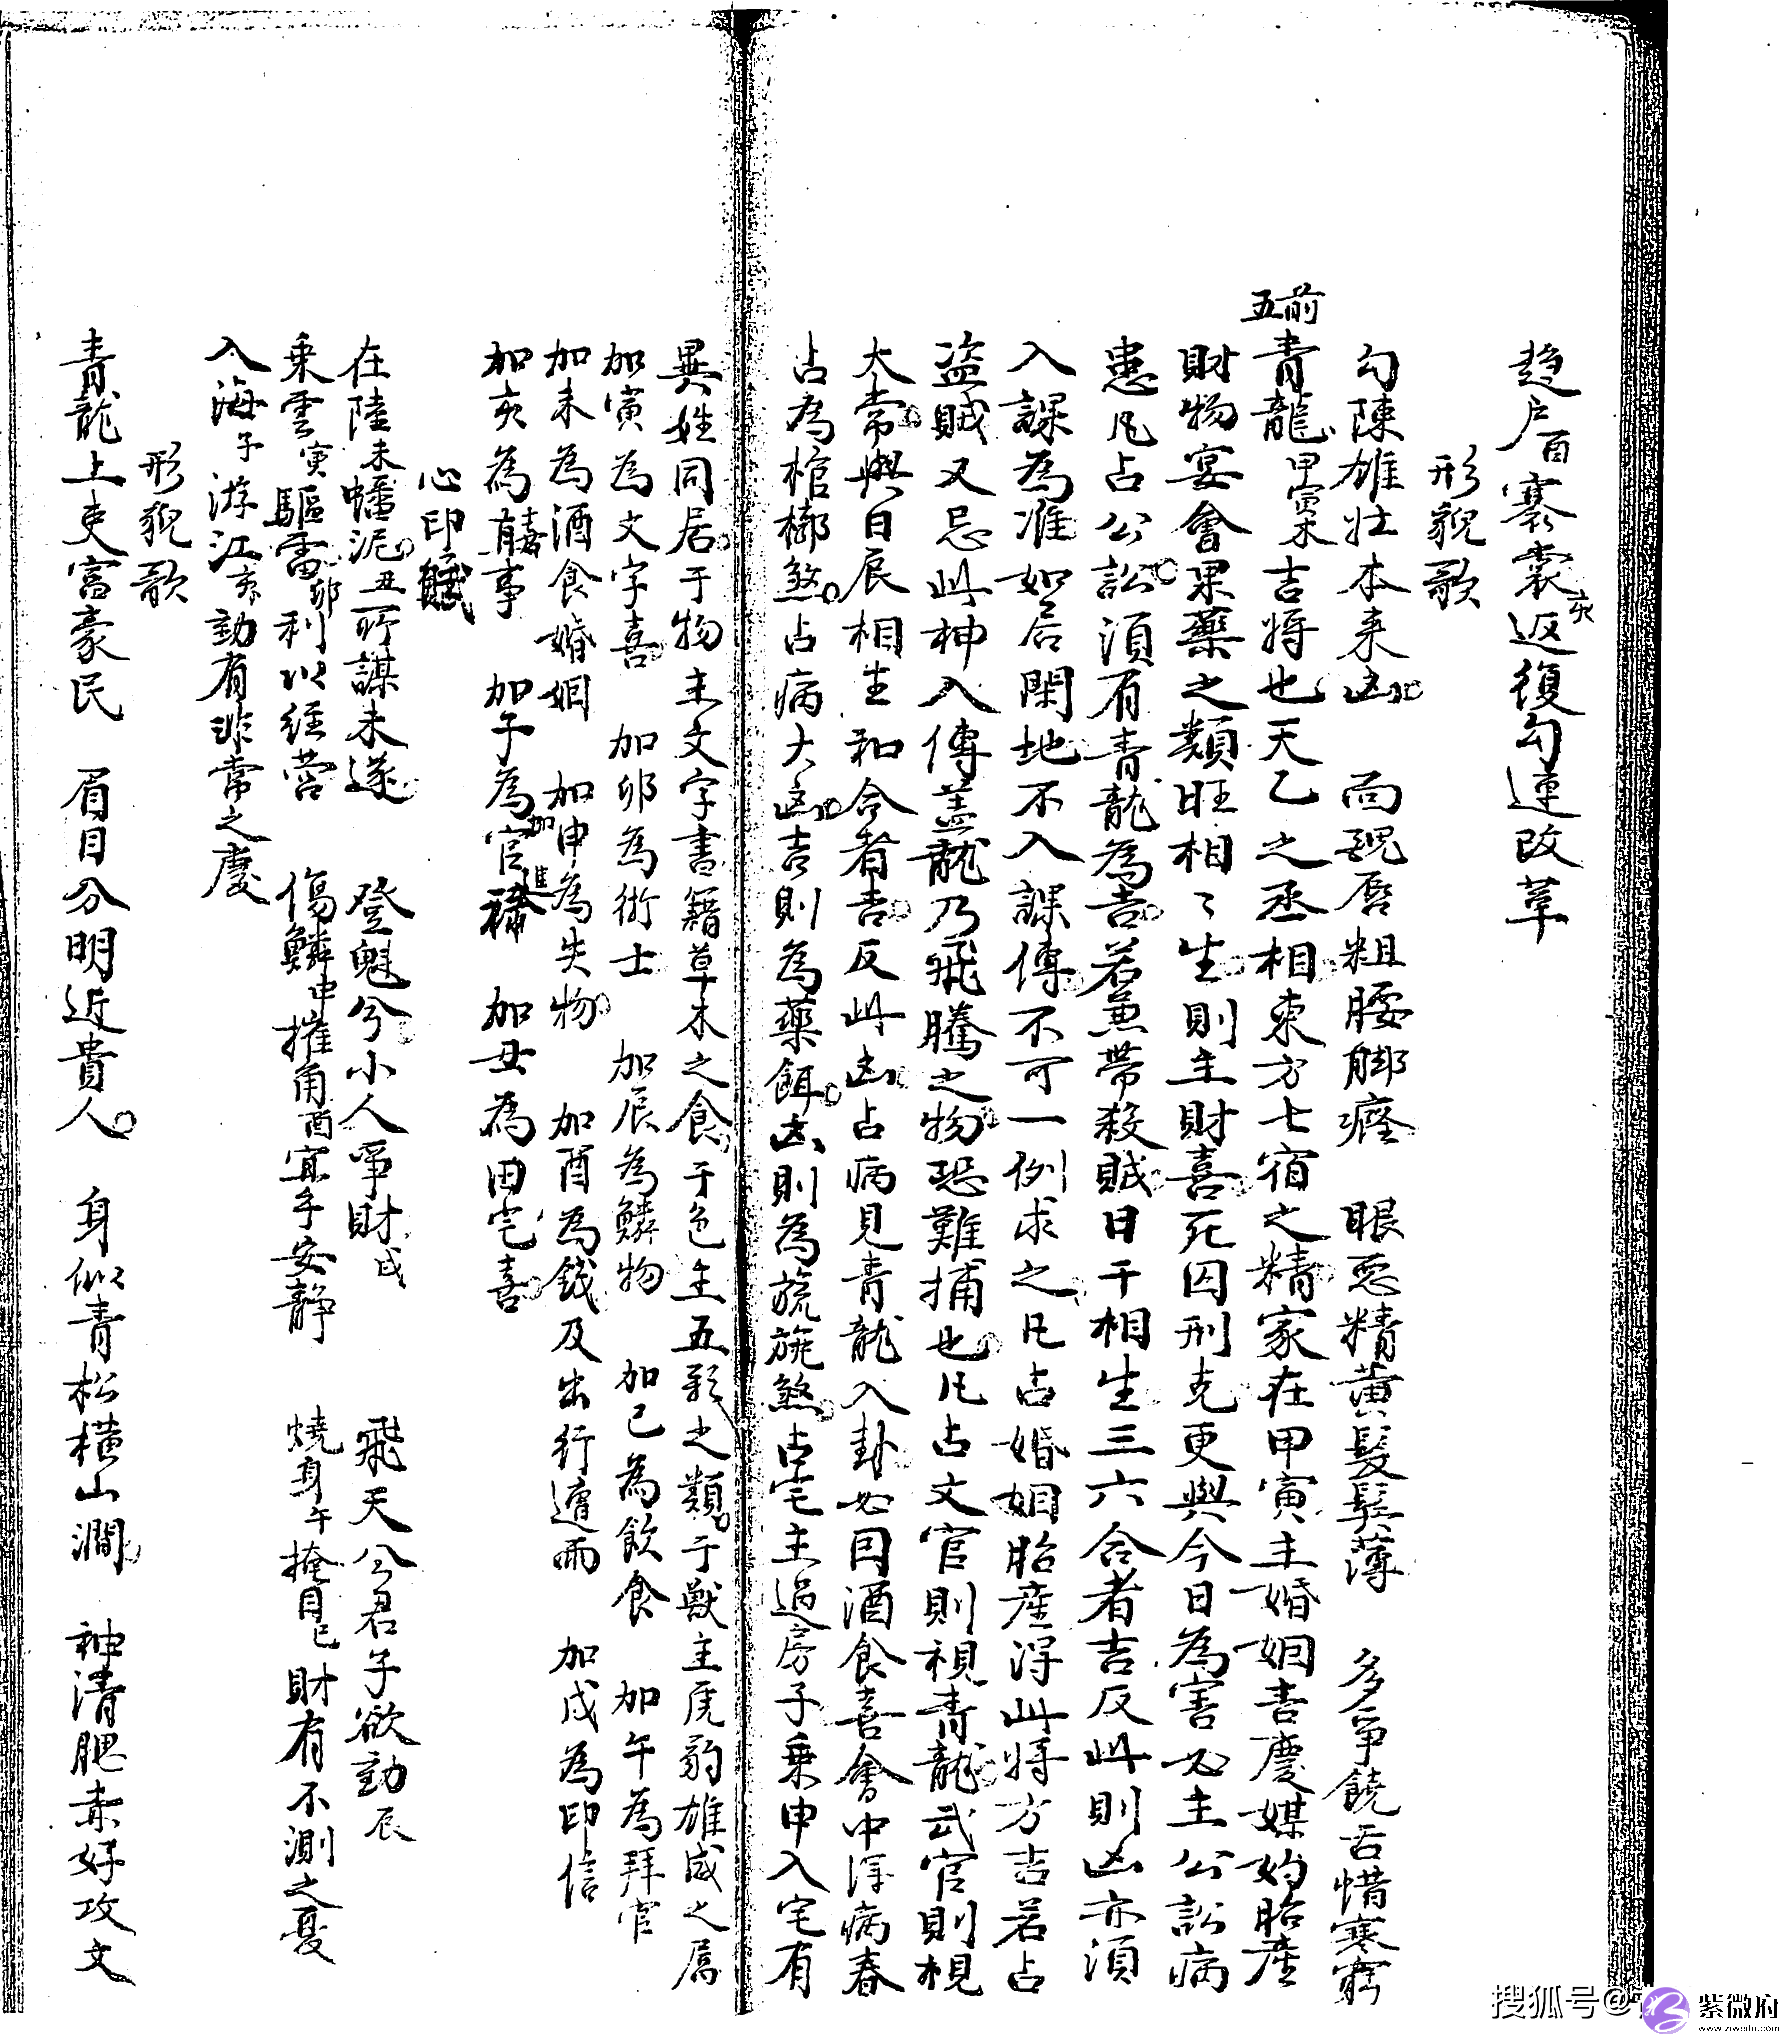 趋户酉褰裳亥返復勾連改革
形貌歌
勾陳雄壮本来凶 面醜唇粗腰脚癃 眼惡精黃髮鬓薄 多爭饒舌惜寒窮
前五
青龍甲寅木吉將也天乙之丞相東方七宿之精家在甲寅主婚姻喜慶媒妁胎產
財物宴會果藥之類旺相〻生則主財喜死囚刑克更與今日為害必主公訟病
患凡占公訟須有青龍為吉若兼帶殺賊日干相生三六合者吉反此則凶亦須
入課為准如居閑地不入課傳不可一例求之凡占婚姻胎產得此將方吉若占
盗賊又忌此神入傳盖龍乃飛騰之物恐難捕也凡占文官則視青龍武官則視
太常與日辰相生和合者吉反此凶占病見青龍入卦必因酒食喜會中得病春
占為棺槨煞占病大凶吉則為藥餌凶則為旒旐煞占宅主過房子乗申入宅有
異姓同居于物主文字書籍草木之食于色主五彩之類于獸主虎豹雄威之属
加寅為文字喜 加卯為術士 加辰為鱗物 加已為飲食 加午為拜官
加未為酒食婚姻 加申為失物 加酉為錢及出行遭雨 加戌為印信
加亥為喜事 加子為官進 加丑為田宅喜
心印賦
在陸未蟠泥丑所謀未遂 登魁兮小人爭財戌 飛天兮君子欲動辰
乗雲寅驅雷卯利以經營 傷鱗申摧角酉宜乎安靜 燒身午掩目巳財有不測之憂
入海子游江亥動有非常之慶
形貌歌
青龍上吏富豪民 眉目分明近貴人 身似青松横山澗 神清肥赤好攻文
搜狐号@
紫微府